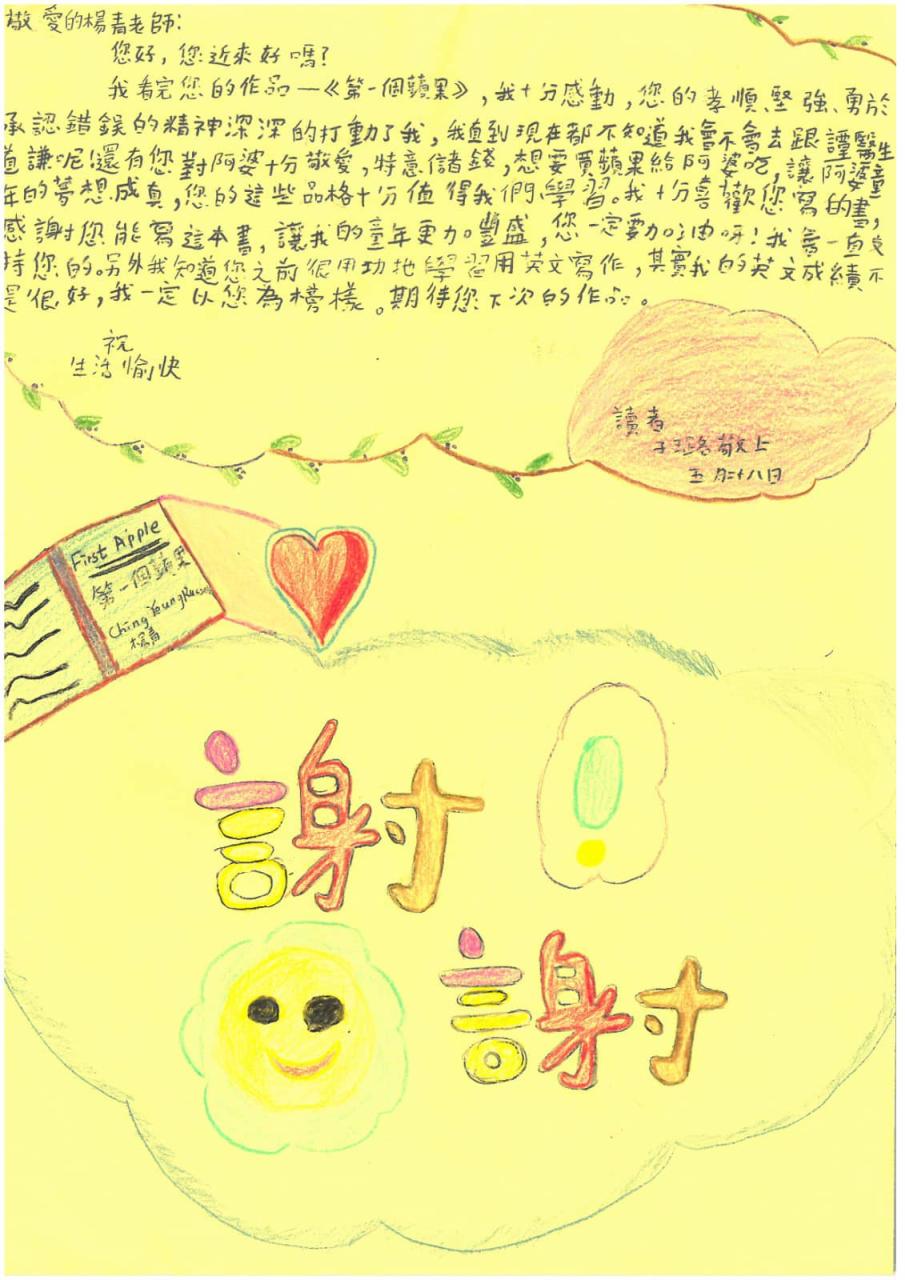 敬愛的楊青老師:
您好,您近來好嗎?
我看完您的作品—《第一個蘋果》,我十分感動,您的孝順、堅強、勇於
承認錯誤的精神深深的打動了我,我直到現在都不知道我會不會去跟譚醫生
道謙呢!還有您對阿婆十分敬愛,特意儲錢,想要買蘋果給阿婆吃,讓阿婆童
年的夢想成真,您的這些品格十分值得我們學習。我十分喜歡您寫的書,
感謝您能寫這本書,讓我的童年更加豐盛,您一定要加油呀!我會一直支
持您的。另外我知道您之前很用功地學習用英文寫作,其實我的英文成績不
是很好,我一定以您為榜樣。期待您下次的作品。
祝
生活愉快
讀者
敬上
五月二十八日
First Apple
第一個蘋果
Ching Yeung Russell
楊青
謝!
謝